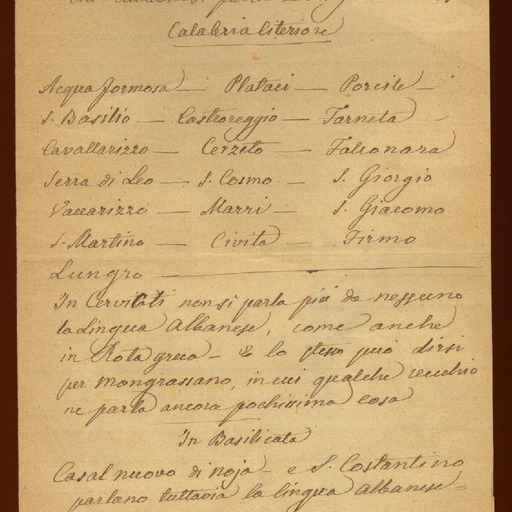 Calabria Citeriore
Acqua formosa — Plataci — Porcile —
S. Basilio — Castroreggio — Farneta —
Cavallarizzo — Cerzeto — Falconara
Serra di Leo — S. Cosmo — S. Giorgio
Vaccarizzo — Marri — S. Giacomo
S. Martino — Civita — Firmo
Lungro —
In Cervicati non si parla più da nessuno
la Lingua Albanese, come anche
in Rota greca — E lo stesso può dirsi
per Mongrassano, in cui qualche vecchio
ne parla ancora pochissima cosa
In Basilicata
Casal nuovo di Noja — e S. Costantino
parlano tuttavia la lingua albanese —